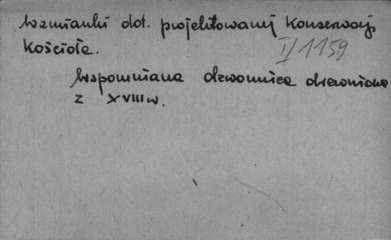 Wzmianki dot. projektowanej konserwacji
Kościoła.
II/1159
Wspomniana dzwonnica drewniana
z XVIII w.